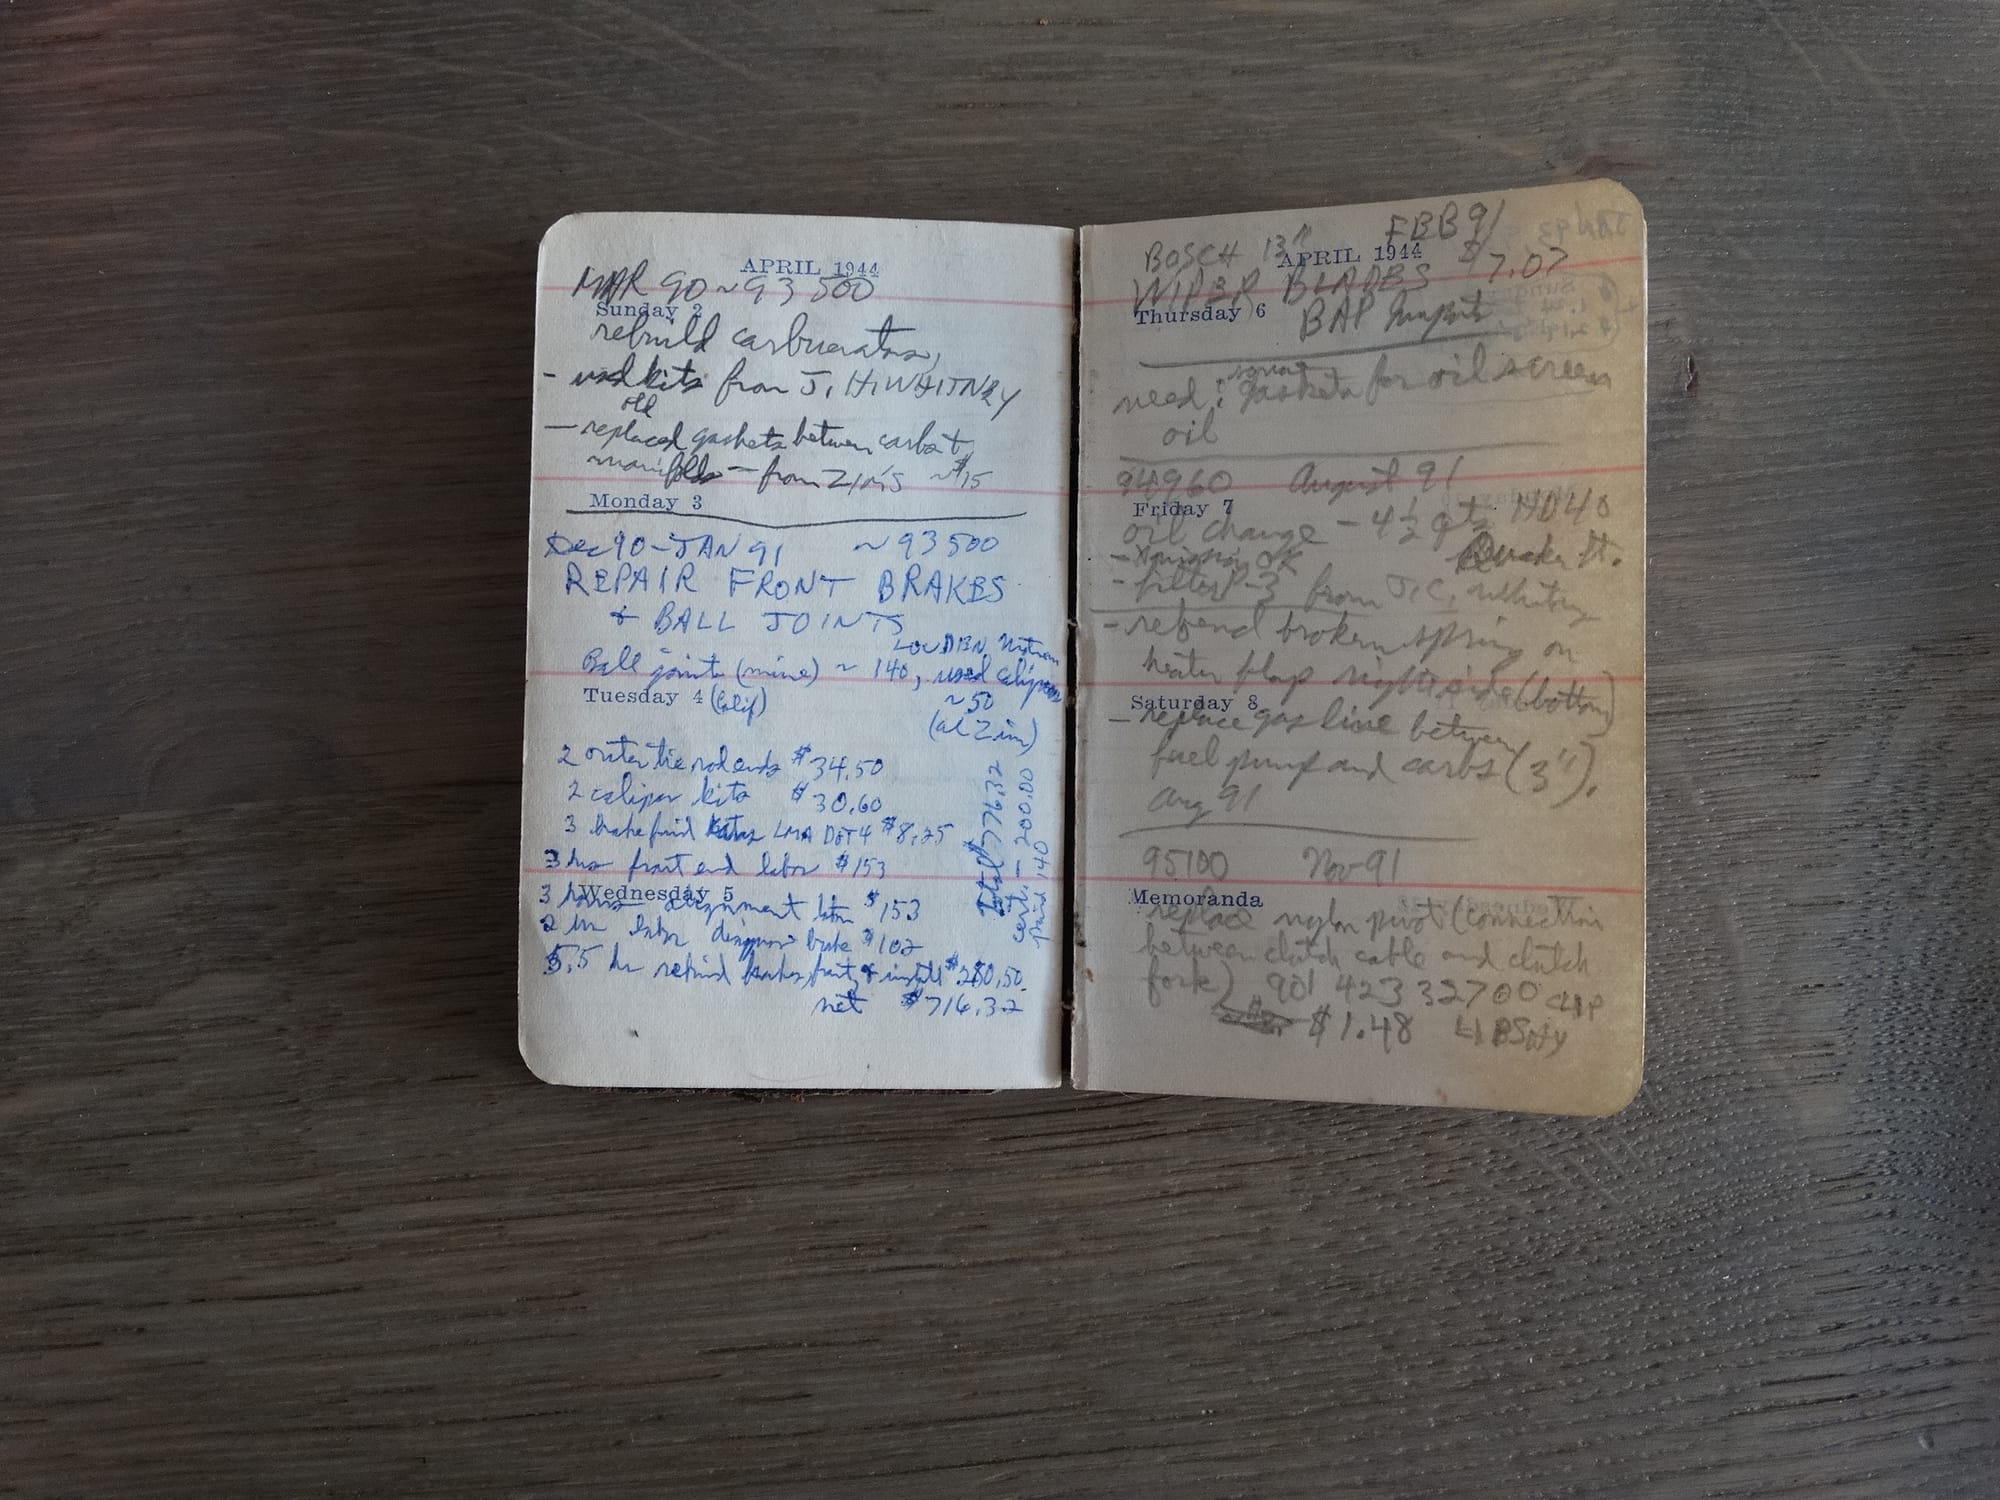 APRIL 1944
MAR 90 ~ 93 500
Sunday 2
rebuild carburators,
- used kits from J. H. WHITNEY
old
- replaced gaskets between carbs &
manifolds - from ZIM'S ~$15
Monday 3
Dec 90 - JAN 91 ~ 93500
REPAIR FRONT BRAKES
& BALL JOINTS
Ball joint (mine) ~ 140, used calipers
Tuesday 4 (Calif) ~50
(at Zim)
2 outer tie rod ends $34.50
2 caliper kits $30.60
3 brake fluid LMA DOT 4 $8.25
3 hrs front end labor $153
Wednesday 5
3 hours alignment labor $153
2 hr labor diagnose brake $102
5.5 hr rebuild brakes, front, & install $280.50
net $716.32
total $776.32
- 200.00
paid 140
FEB 91
BOSCH 13"
APRIL 1944
WIPER BLADES $7.07
Thursday 6
BAP Import
need: gaskets for oil screen
oil
94960 August 91
Friday 7
oil change - 4 1/2 qts HD40
Quaker St.
- Xmission OK
- filter P-3 from J.C. Whitney
- rebend broken spring on
heater flap right side (bottom)
Saturday 8
- replace gas line between
fuel pump and carbs (3").
Aug 91
95100 Nov 91
Memoranda
replace nylon pivot (connection
between clutch cable and clutch
fork) 901 423 32700 CLIP
$1.48